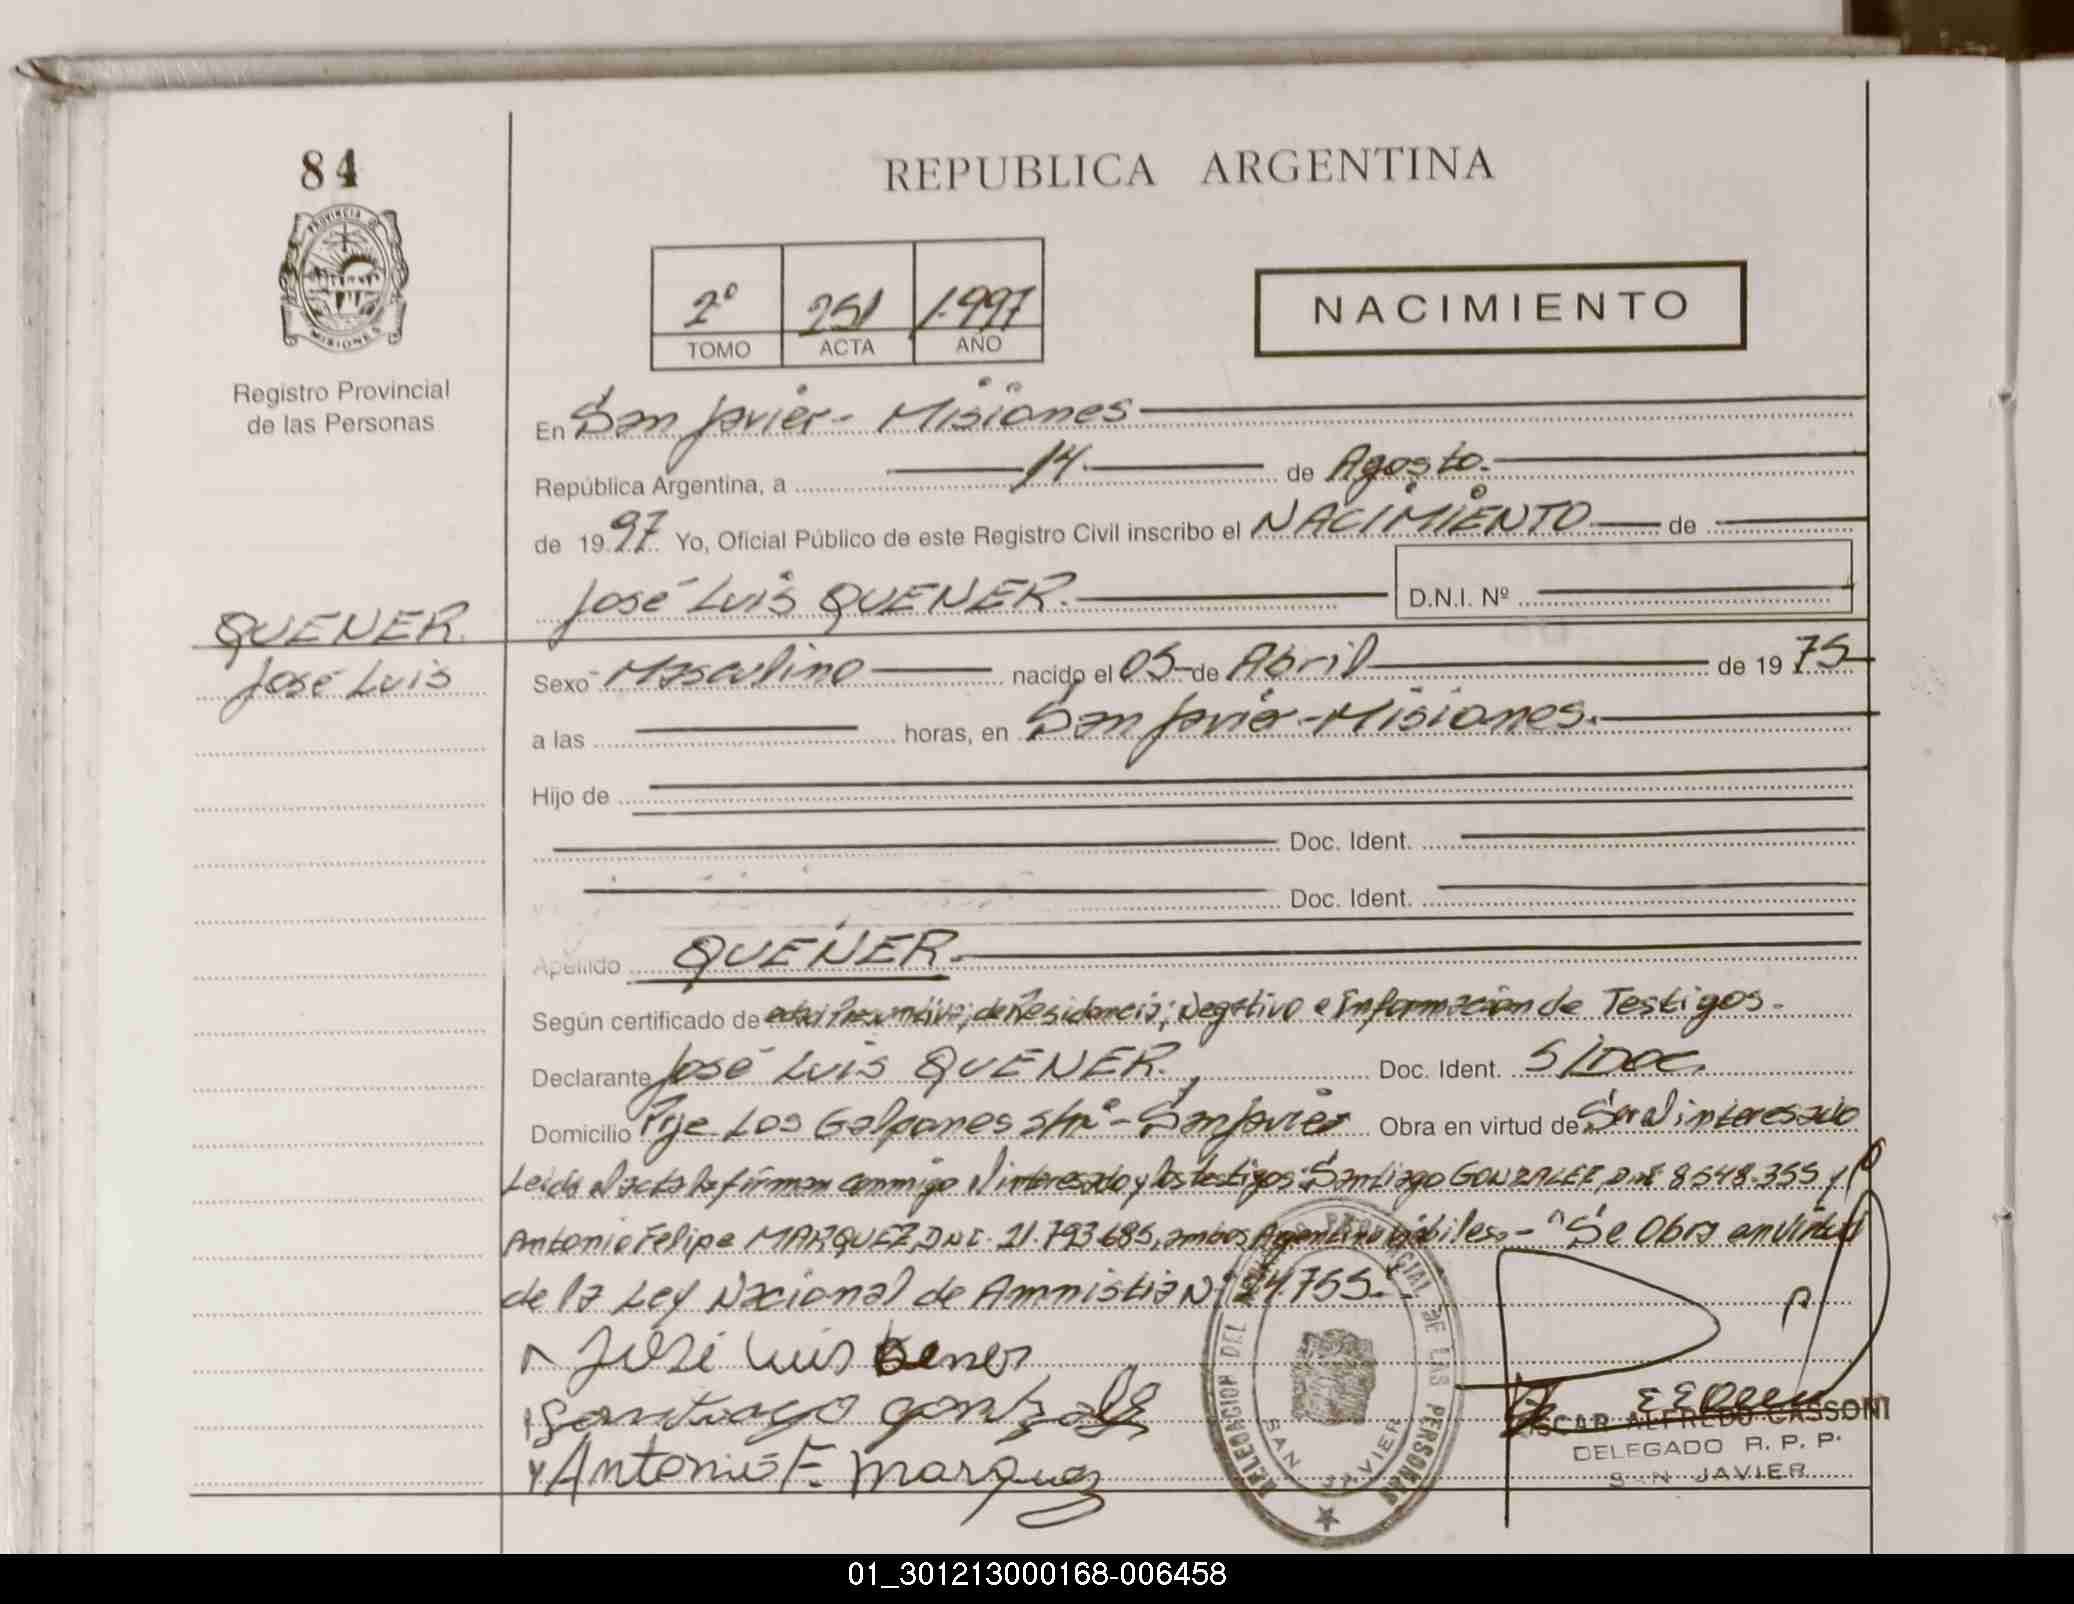 84
REPUBLICA ARGENTINA
PROVINCIA DE
MISIONES
2º 251 1.997
TOMO ACTA AÑO
NACIMIENTO
Registro Provincial
de las Personas
En San Javier - Misiones
República Argentina, a 14 de Agosto.
de 1997. Yo, Oficial Público de este Registro Civil inscribo el NACIMIENTO de
José Luis QUENER. D.N.I. Nº
QUENER.
José Luis
Sexo Masculino nacido el 05 de Abril de 1975
a las horas, en San Javier - Misiones.
Hijo de
Doc. Ident.
Doc. Ident.
Apellido QUENER.
Según certificado de edad Presuntiva; de Residencia; Negativo e Información de Testigos.
Declarante José Luis QUENER. Doc. Ident. S/DOC.
Domicilio Pje Los Galpones s/nº - San Javier Obra en virtud de Ser el interesado
Leida el acta la firman conmigo el interesado y los testigos: Santiago GONZALEZ, D.N.I. 8.548.355 y
Antonio Felipe MARQUEZ, D.N.I. 21.793.685, ambos Argentinos hábiles. - "Se Obra en virtud
de la Ley Nacional de Amnistia Nº 24.755."
José Luis Kener
Santiago Gonzalez
y Antonio F. Marquez
DELEGACION DEL REGISTRO PROVINCIAL DE LAS PERSONAS
SAN JAVIER
OSCAR ALFREDO CASSONI
DELEGADO R. P. P.
SAN JAVIER
01_301213000168-006458